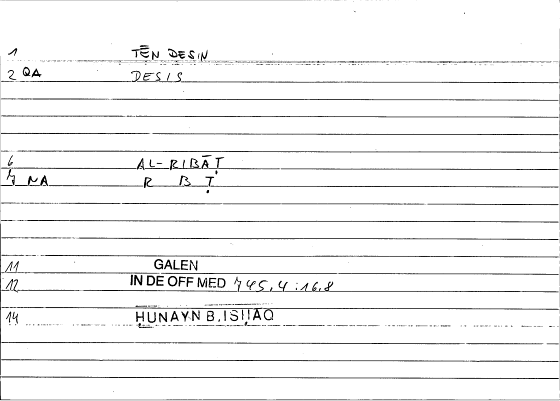 1 TĒN DESIN
2 QA DESIS
6 AL-RIBĀṬ
7 NA R B Ṭ
11 GALEN
12 IN DE OFF MED 745,4 : 16,8
14 ḤUNAYN B. ISḤAQ